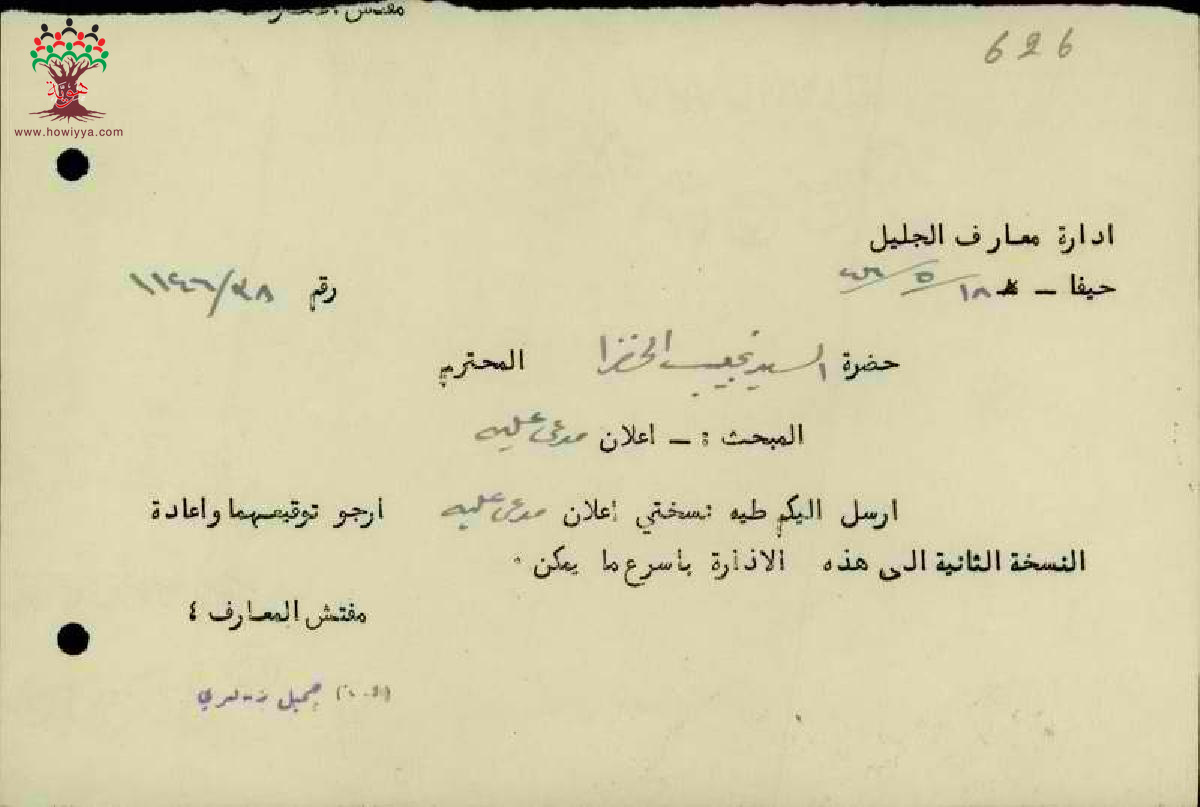 مفتش المعارف
626
هوية
www.howiyya.com
ادارة معارف الجليل
حيفا - ١٨/٥/٤٦
رقم ١١٤٦/٣٨
حضرة السيد نجيب الخضرا المحترم
المبحث : - اعلان مدعى عليه
ارسل اليكم طيه نسختي اعلان مدعى عليه ارجو توقيعهما واعادة
النسخة الثانية الى هذه الادارة بأسرع ما يمكن .
مفتش المعارف ٤
جميل